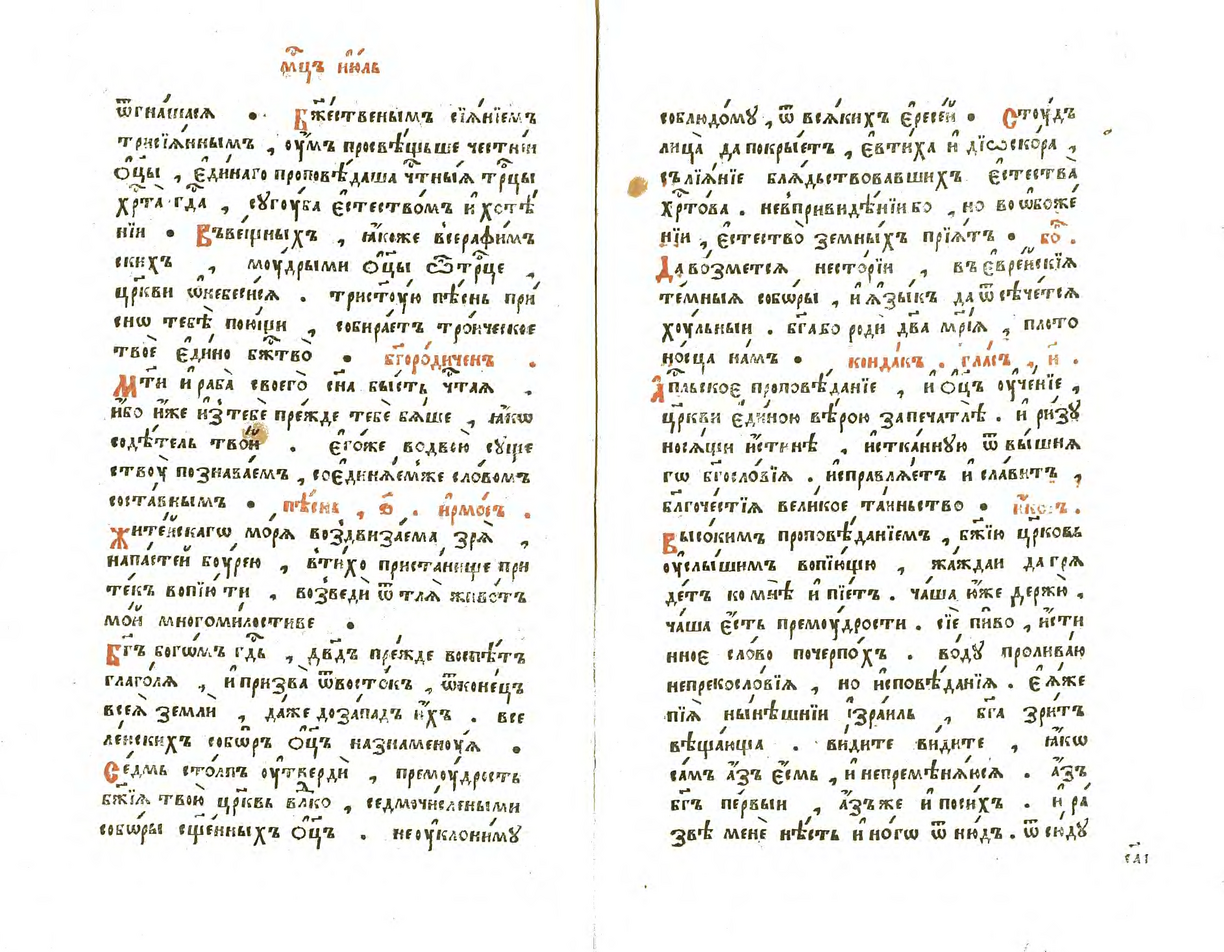 мⷭ҇цъ і҆ю́ль
ѿгна́шасѧ • Бж҃е́ственымъ сїѧ́нїемъ
трисїѧ́ннымъ , ᲂу҆́мъ просвѣ́щьше честні́и
ѻ҆ц҃ы̀ , є҆ди́наго проповѣ́даша чⷭ҇тны́ѧ трⷪ҇цы
хрⷭ҇та̀ гдⷭ҇а , сᲂугꙋ́ба є҆стество́мъ и҆ хотѣ́
нїи • Въ ве́щныхъ , ꙗ҆́коже в̾ серафи́мъ
скихъ , мꙋ́дрыми ѻ҆ц҃ы̀ ѽ трⷪ҇це ,
цр҃кви ѡ҆ небе́снѣ́и . тристꙋ́ю пѣ́снь при́
снѡ тебѣ̀ пою́щи , собира́етъ тро́ическое
твоѐ є҆ди́но бж҃тво̀ • бг҃оро́диченъ .
Мт҃и и҆ раба̀ своего̀ сн҃а бы́сть чⷭ҇таѧ ,
и҆́бо и҆́же и҆з̾ тебѐ пре́жде тебѐ бѧ́ше , ꙗ҆́кѡ
содѣ́тель тво́й . є҆го́же во двою̀ сꙋще
ствꙋ̀ познава́емъ , соє҆динѧ́ємже сло́вомъ
соста́внымъ • пѣ́снь , ѕ҃ . і҆рмо́съ .
Жите́йскагѡ мо́рѧ воздвиза́ема зрѧ̀ ,
напа́стей бꙋ́рею , в̾ ти́хо приста́нище при
те́къ вопїю́ ти , возведѝ ѿ тлѧ̀ живо́тъ
мо́й многоми́лостиве •
Бг҃ъ богѡ́мъ гдⷭ҇ь , дв҃дъ пре́жде воспѣ́тъ
глаго́лѧ , и҆ призва̀ ѿ восто́къ , ѿ коне́цъ
всеѧ̀ землѝ , да́же до за́падъ и҆́хъ . все
ле́нскихъ собѡ́ръ ѻ҆ц҃ъ назна́менꙋѧ •
Се́дмь сто́лпъ ᲂу҆твердѝ , премꙋ́дрость
бж҃їѧ твою̀ цр҃квь влⷣко , седмочи́сленыими
собѡ́ры сщ҃е́нныхъ ѻ҆ц҃ъ . неᲂукло́нимꙋ
соблюдо́мꙋ , ѿ всѧ́кихъ є҆ресе́й • Стꙋ́дъ
лица̀ да покры́етъ , є҆в̾ти́ха и҆ дїѡ́скора ,
съ́лїѧ́нїе блѧ́дьствовавшихъ є҆стества̀
хрⷭ҇то́ва . не в̾ привидѣ́нїи бо , но во ѡ҆боже
нїи , є҆стество̀ земны́хъ прїѧ́тъ • боⷢ҇ .
Да во́зметсѧ несто́рїи , въ є҆вре́йскїѧ
те́мныѧ собѡ́ры , и҆ ѧ҆зы́къ да ѿсѣ́четсѧ
хꙋ́льныи . бг҃а бо родѝ дв҃а мр҃і́ѧ , плото
но́сца на́мъ • конда́къ . гла́съ , и҃ .
А҆пⷭ҇льское проповѣ́данїе , и҆ ѻ҆ц҃ъ ᲂу҆че́нїе ,
цр҃кви є҆ди́ною вѣ́рою запечатлѣ̀ . и҆ ри́зꙋ
носѧ́щи и҆́стинѣ , и҆стка́ннꙋю ѿ вы́шнѧ
гѡ бг҃осло́вїѧ . и҆справлѧ́етъ и҆ сла́витъ ,
бл҃гоче́стїѧ вели́кое та́иньство • и҆́косъ .
Высо́кимъ проповѣ́данїемъ , бж҃їю цр҃ковь
ᲂу҆слы́шимъ вопїю́щю , жа́ждаи да грѧ
де́тъ ко мнѣ̀ и҆ пїе́тъ . ча́ша ю҆́же держю̀ ,
ча́ша є҆́сть премꙋ́дрости . сїѐ пи́во , и҆́сти
нное сло́во почерпо́хъ . во́дꙋ пролива́ю
непрекосло́вїѧ , но и҆сповѣ́данїѧ . є҆ѧ́же
пїѧ̀ ны́нѣшнїи і҆зра́иль , бг҃а зри́тъ
вѣща́юща . ви́дите ви́дите , ꙗ҆́кѡ
са́мъ а҆́зъ є҆́смь , и҆ не премѣнѧ́юсѧ . а҆́зъ
бг҃ъ пе́рвыи , а҆́зъ же и҆ поси́хъ . и҆ ра́
звѣ менѐ нѣ́сть и҆но́гѡ ѿню́дъ . ѿ сю́дꙋ
сд҃і